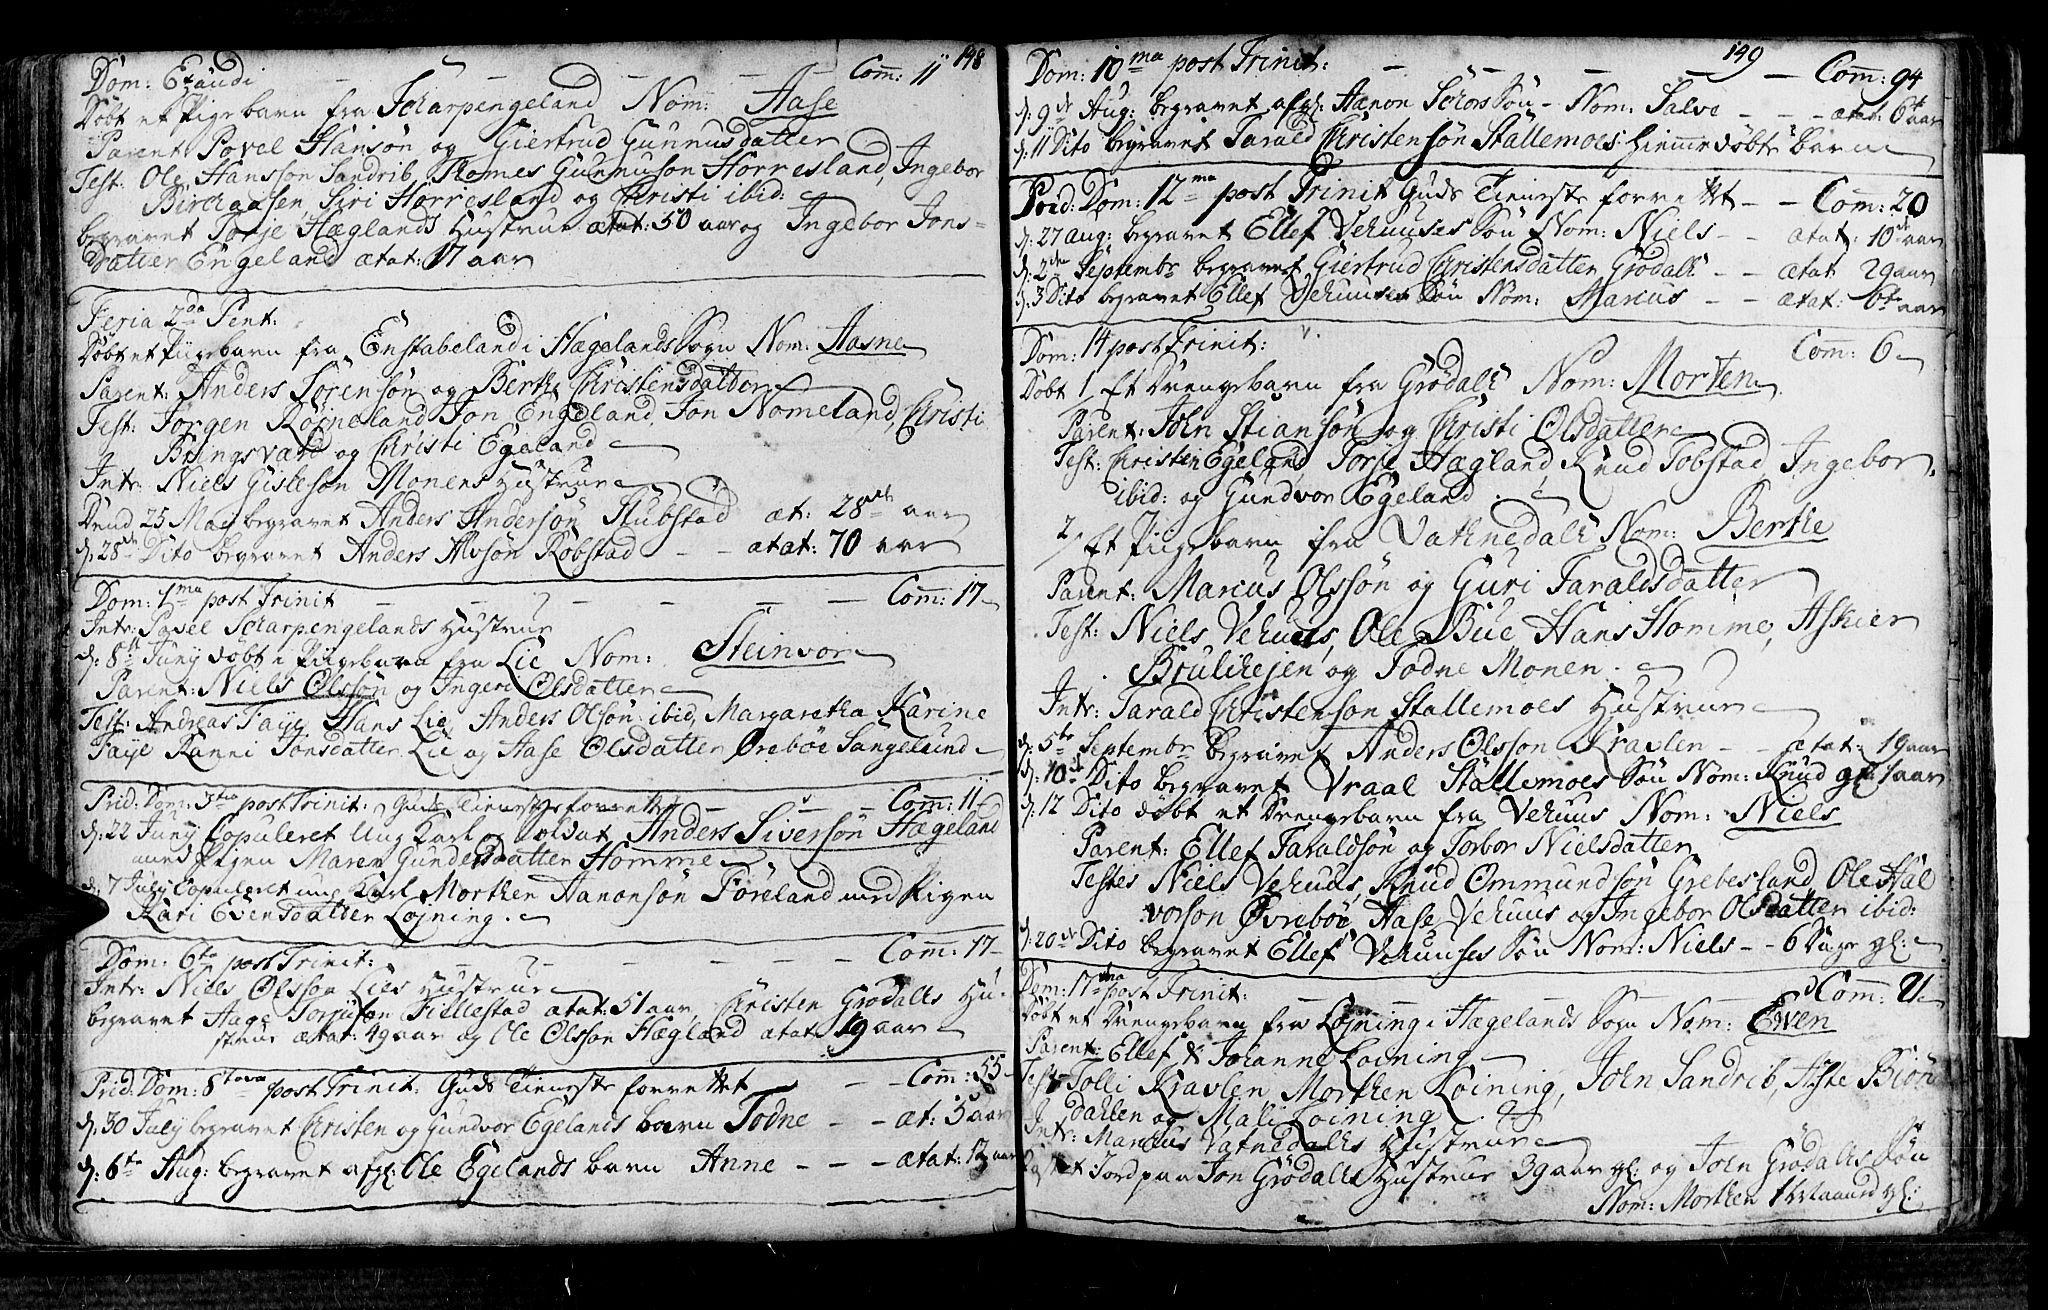 148
Dom: Exaudi - - - - - Com: 11
Døbt et Pigebarn fra Scharpengeland Nom: Aase
Parent: Povel Hansøn og Giertrud Gunnusdatter
Test: Ole Hansson Sandrib, Thomes Gunnuson Horresland, Ingebor
Birchaasen, Siri Horresland og Christi ibid:
begravet Torje Hæglands Hustrue ætat: 50 aar og Ingebor Jons-
datter Engeland ætat: 17 aar
Feria 2da Pent:
Døbt et Pigebarn fra Enstabeland i Hægelands Sogn Nom: Aasne
Parent: Anders Sørensøn og Berthe Christensdatter
Test: Jørgen Røyneland, Jon Engeland, Jon Nomeland, Christi
Bringsværd og Christi Egeland
Intr: Niels Gislesøn Monens Hustrue
Dend 25 Maj begravet Anders Andersøn Stubstad æt: 28de aar
d. 28de Dito begravet Anders Alvsøn Robstad - - ætat: 70 aar
Dom: 1ma post Trinit - - - - - - Com: 17
Intr: Pavel Scharpengelands Hustrue
d. 8de Juny døbt i Pigebarn fra Lie Nom: Steinvor
Parent: Niels Olssøn og Ingeri Olsdatter
Test: Andreas Faye, Hans Lie, Anders Olsøn ibid, Margaretha Karine
Faye Ranni Jonsdatter Lie og Aase Olsdatter Øvrebøe Sangelund
Prid: Dom: 3tia post Trinit: Guds Tienestes forrettet - - - Com: 11
d. 22 Juny Copuleret Ung Karl og Soldat Anders Siversøn Hægeland
med Pigen Maren Gundersdatter Homme
d. 7 July Copuleret ung Karl Morthen Aanonsøn Føreland med Pigen
Kari Evensdatter Løjning.
Dom: 6te post Trinit: - - - - - - Com: 17
Intr: Niels Olsson Lies Hustrue
begravet Aage Torjusøn Fiellestad ætat: 51 aar, Christen Grødalls Hu-
strue ætat: 49 aar og Ole Olsson Hægland ætat: 19 aar
Prid: Dom: 8tava post Trinit: Guds Tieneste forrettet - - Com: 55
d. 30 July begravet Christen og Gundvor Egelands barn Todne - - æt: 5 aar
d. 6te Aug: begravet afgl: Ole Egelands barn Anne - - - ætat: 12 aar
149
Dom: 10ma post Trinit: - - - - - Com: 94
d. 9de Aug: begravet afgl: Aanon Schors Søn - Nom: Salve - - - ætat: 6te aar
d. 11 Dito begravet Tarald Christensøn Stallemoes hiemmedøbte barn
Prid: Dom: 12ma post Trinit Guds Tieneste forrettet - - Com: 20
d. 27 Aug: begravet Ellef Vehuuses Søn Nom: Niels - - ætat: 10 aar
d. 2den Septembr begravet Giertrud Christensdatter Grødall - - ætat 29 aar
d. 3 Dito begravet Ellef Vehuuses Søn Nom: Marcus - - ætat: 6te aar
Dom: 14 post Trinit: Com: 6
Døbt 1 Et Drengebarn fra Grødall Nom: Morten
Parent: John Stiansøn og Christi Olsdatter
Test: Christen Egeland, Torje Hægland, Knud Tobstad, Ingebor
ibid: og Gundvor Egeland
2, Et Pigebarn fra Vatnedall Nom: Berthe
Parent: Marcus Olssøn og Guri Taraldsdatter
Test: Niels Vehuus, Ole Bue, Hans Homme, Askier
Brulihejen og Todne Monen
Intr: Tarald Christenson Stallemoes Hustrue
d. 5te Septembr begravet Anders Olsson Kravlen - - ætat: 19 aar
d. 10de Dito begravet Vraal Stallemoes Søn Nom: Knud gl: 1 aar
d. 12 Dito døbt et Drengebarn fra Vehuus Nom: Niels
Parent: Ellef Taraldsøn og Torbor Nielsdatter
Testes Niels Vehuus, Knud Ommundsøn Grebesland, Ole Hal
vorson Øvrebøe, Aase Vehuus og Ingebor Olsdatter ibid:
d. 20de Dito begravet Ellef Vehuuses Søn Nom: Niels - - 6 Dage gl:
Dom: 17ma post Trinit: - - - - Com: 21
Døbt et Drengebarn fra Løjning i Hægelands Sogn Nom: Even
Parent: Ellef & Johanne Loining
Test: Tolli Kravlen, Morthen Loining, John Sandrib, Aste Biørn
dahlen og Mali Loining
Intr: Marcus Vatnedalls Hustrue
Kastet Jord paa Jon Grødalls Hustrue 39 aar gl: og John Grødalls Søn
Nom: Morthen 1 Maaned gl: